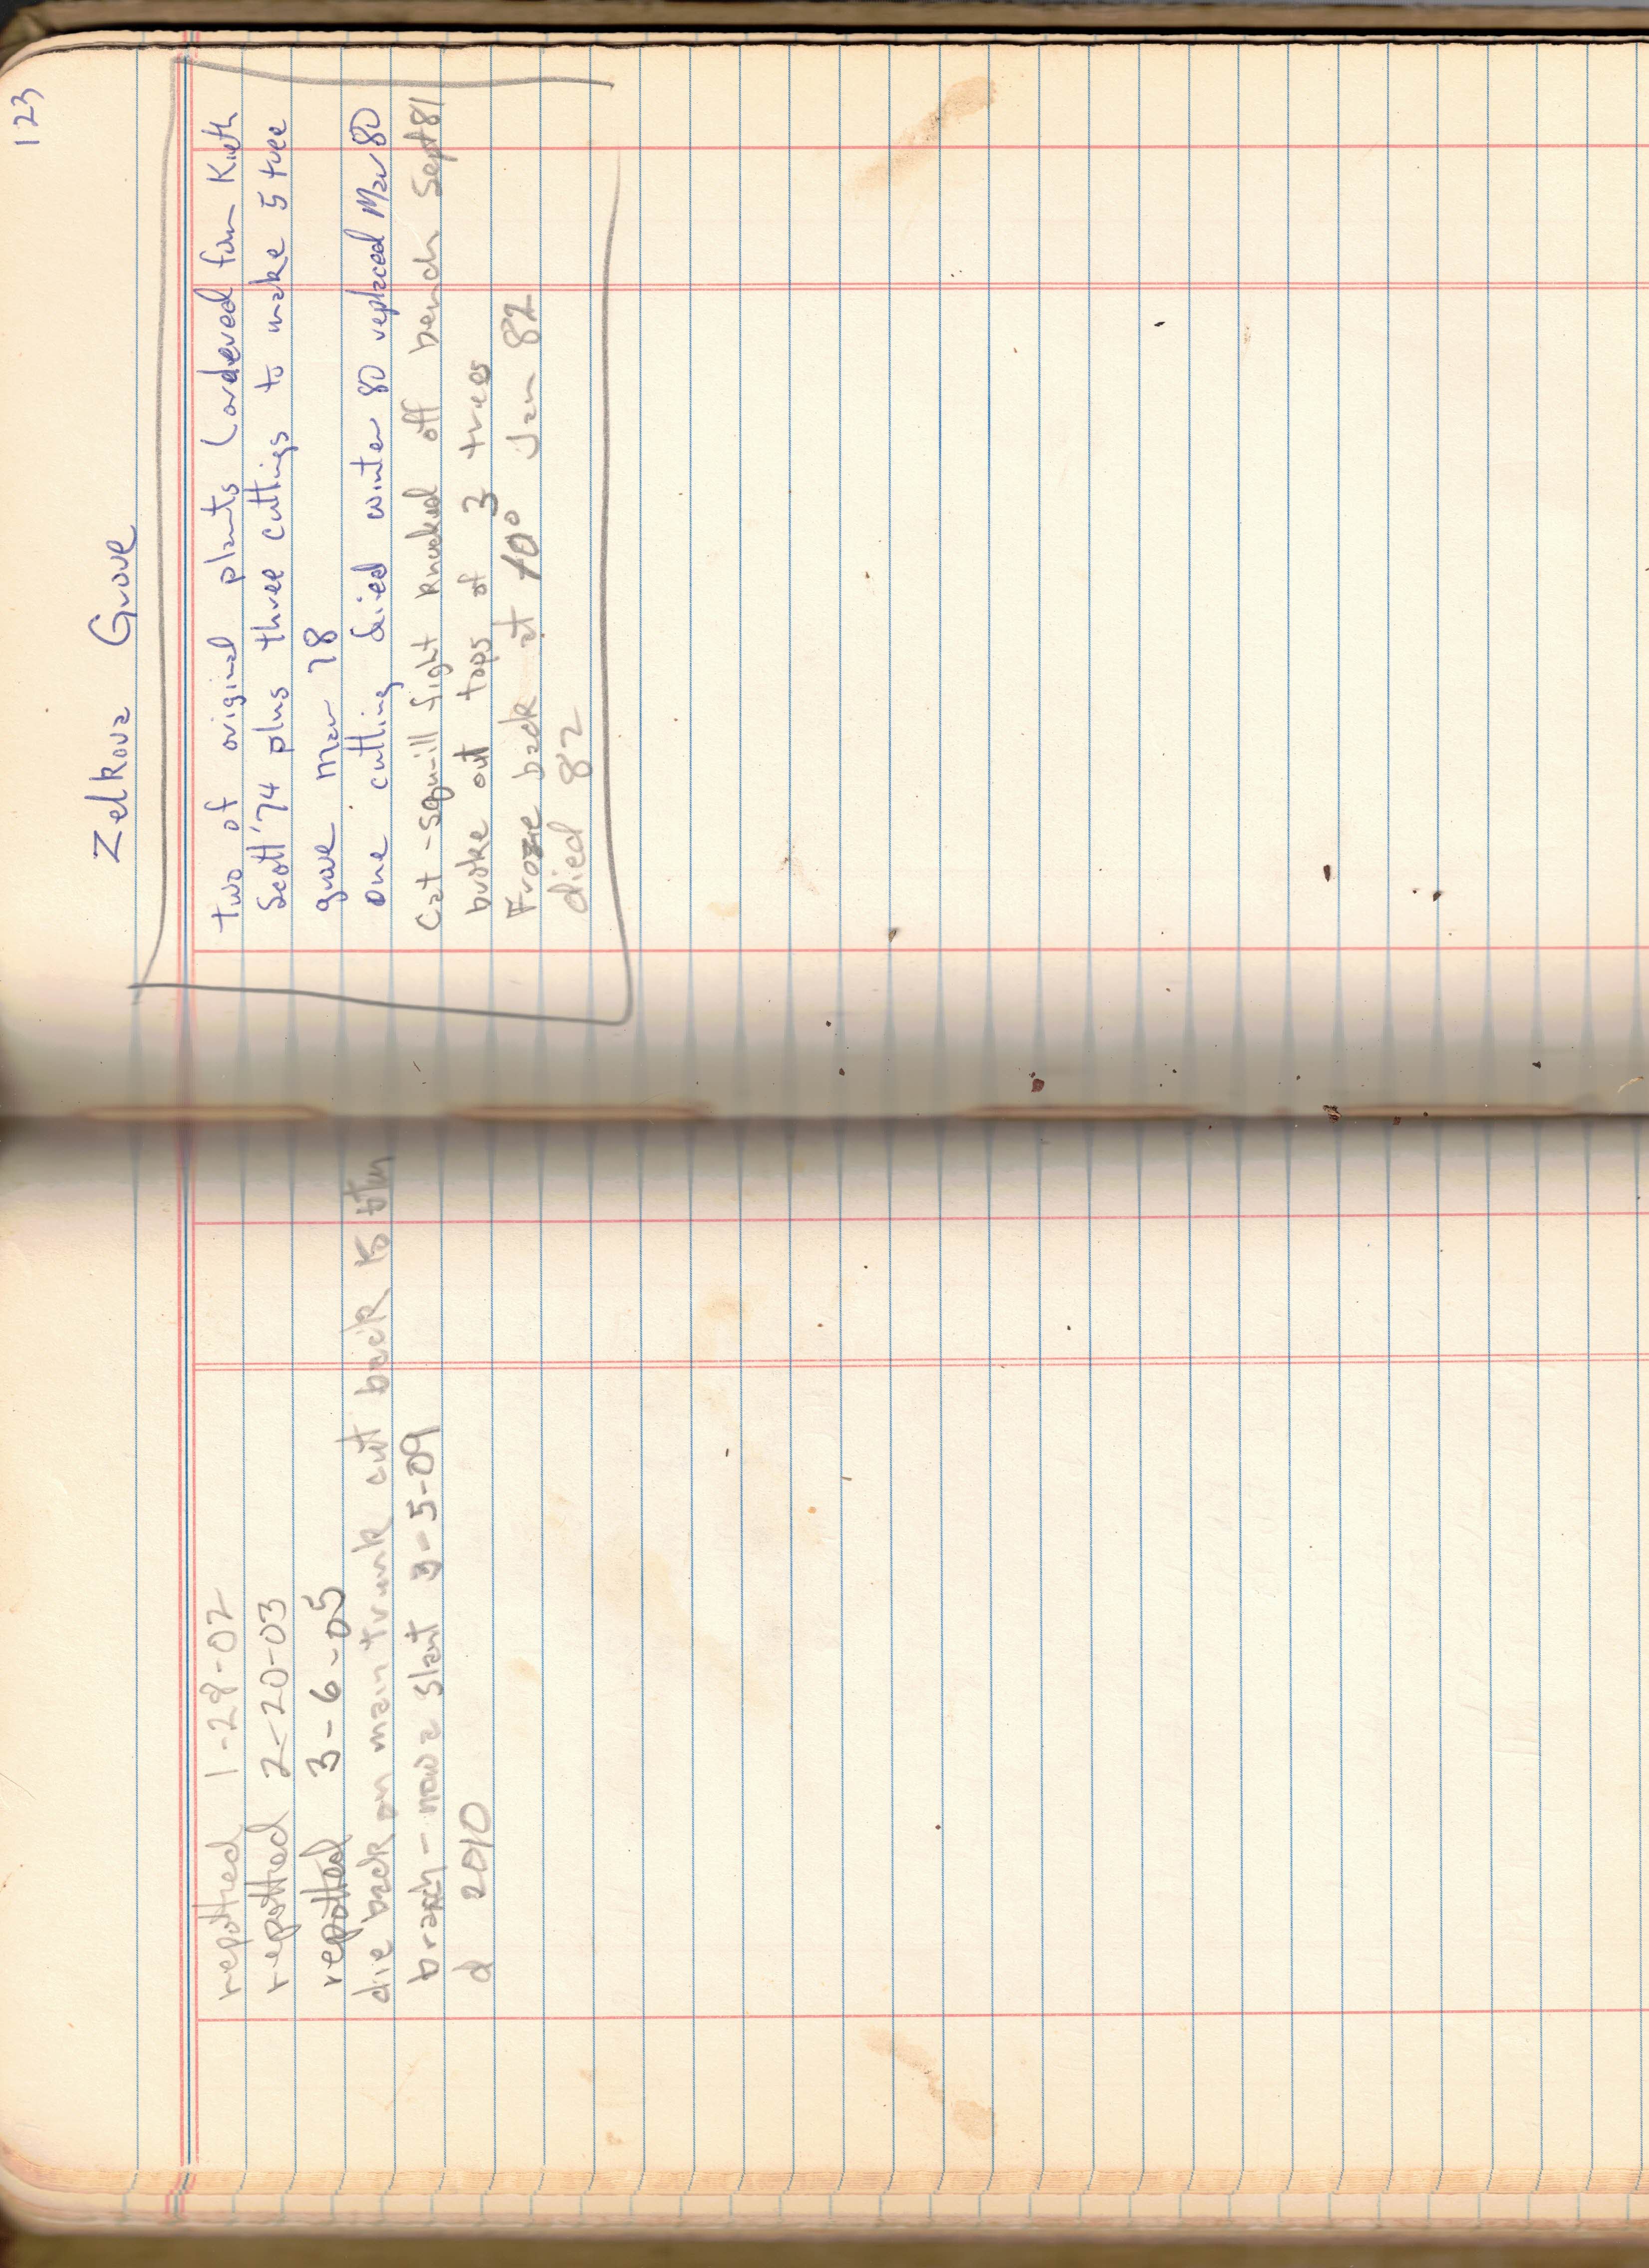 repotted 1-28-02
repotted 2-20-03
repotted 3-6-05
die back on main trunk cut back to btm
branch - now a slant 3-5-09
d 2010
123
Zelkova Grove
two of original plants (ordered from Kieth
Scott '74 plus three cuttings to make 5 tree
grove Mar 78
one cutting dried winter 80 replaced Mar 80
Cat-squrill fight knocked off bench Sept 81
broke out tops of 3 trees
Froze back at 10° Jan 82
died 82